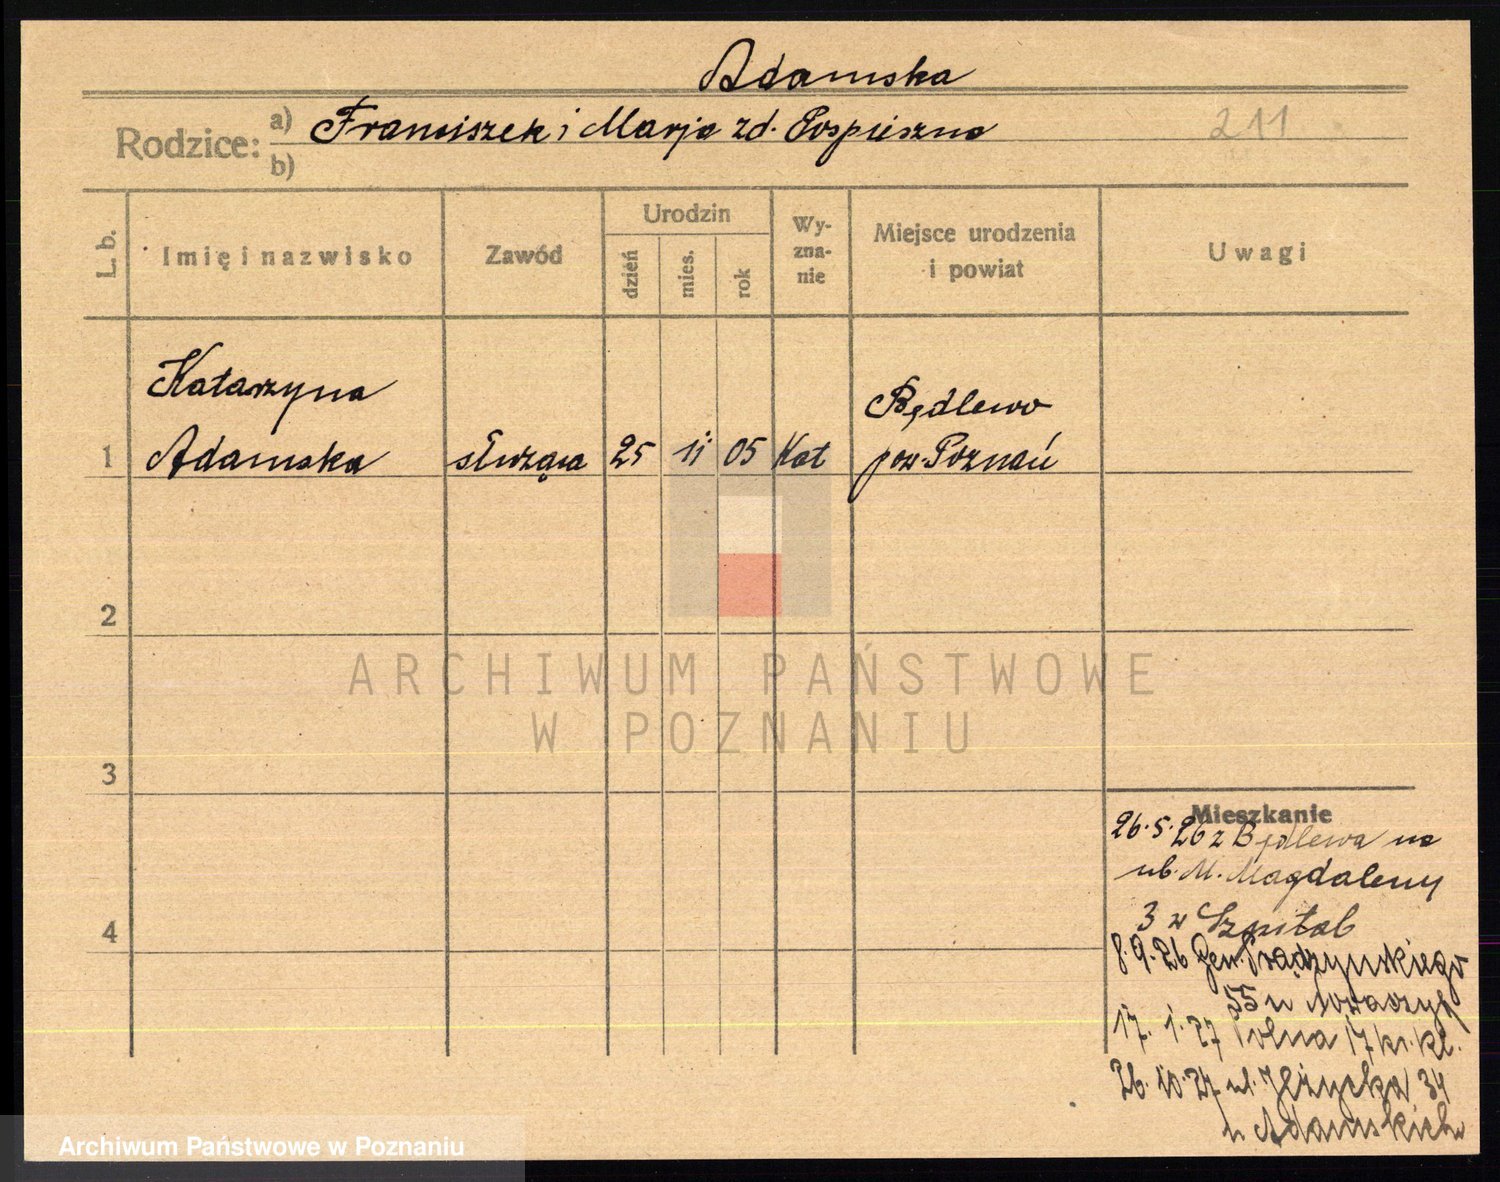 Adamska
Rodzice: a) Franciszek i Marja zd. Pospieszna
b)
211
L. b.
Imię i nazwisko
Zawód
Urodzin
dzień
mies.
rok
Wy-
zna-
nie
Miejsce urodzenia
i powiat
Uwagi
Katarzyna
Będlewo
1 Adamska służąca 25 11 05 Kat pow. Poznań
2
ARCHIWUM PAŃSTWOWE
W POZNANIU
3
Mieszkanie
26.5.26 z Będlewa na
ul. M. Magdaleny
3 w Szpital
4
8.9.26 Gen. Prądzyńskiego
55 u Nowaczyk
17. 1. 27 Polna 17
26. 10. 27 ul. 34
u Adamskich
Archiwum Państwowe w Poznaniu